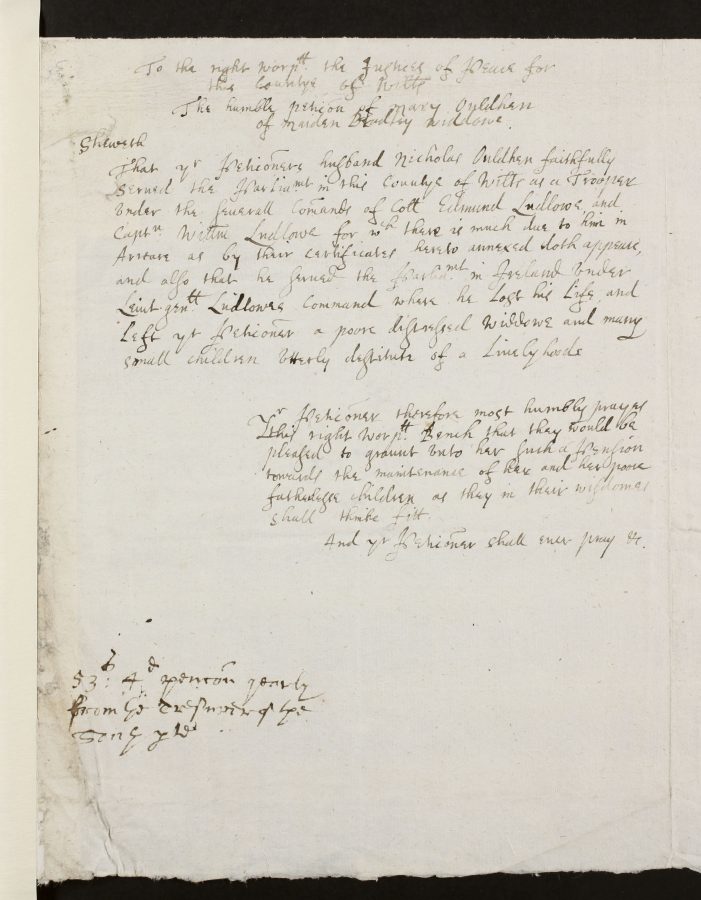 To the right worpll the Justices of Peace for
this Countye of Wilts
The humble peticon of Mary Ouldhen
of Maiden Bradley widdowe.
Sheweth
That yr Peticoners husband Nicholas Ouldhen faithfully
served the Parliamt in this Countye of Wilts as a Trooper
under the severall Comands of Coll Edmund Ludlowe and
Captn Willm Ludlowe for wch there is much due to him in
Arreare as by their certificates hereto annexed doth appeare,
and also that he served the Parliamt in Ireland under
Leiut genll Ludlowes Command where he Lost his Life, and
Left yr Peticoner a poore distressed widdowe and many
small children utterly destitute of a Livelyhoode
Yr Peticoner therefore most humbly prayes
this right worpll Bench that they would be
pleased to graunt unto her such a Pension
towards the maintenance of her and her poore
fatherlesse children as they in their wisdomes
shall thinke fitt.
And yr Peticoner shall ever pray &c.
53s: 4d pencon yearly
from the Tresurer of the